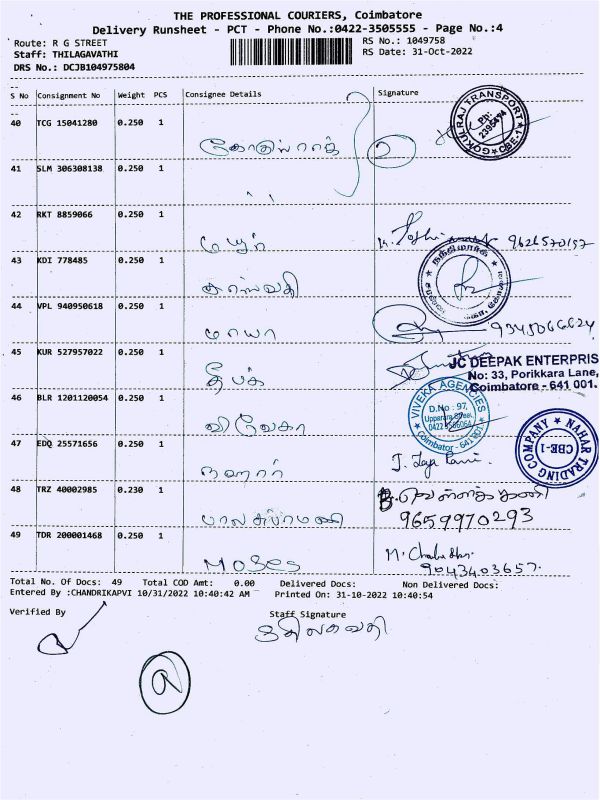 THE PROFESSIONAL COURIERS, Coimbatore
Delivery Runsheet - PCT - Phone No.:0422-3505555 - Page No.:4
Route: R G STREET
RS No.: 1049758
Staff: THILAGAVATHI
RS Date: 31-Oct-2022
DRS No.: DCJB104975804
S No Consignment No Weight PCS Consignee Details Signature
40 TCG 15041280 0.250 1
GOKULRAJ TRANSPORT
Ph:
2395494
CBE-1
கோகுல்ராஜ் 2
41 SLM 306308138 0.250 1
" "
42 RKT 8859066 0.250 1
மயூர் 9626570197
43 KDI 778485 0.250 1
சரஸ்வதி
44 VPL 940950618 0.250 1
மாயா 9345066624
45 KUR 527957022 0.250 1
தீபக்
JC DEEPAK ENTERPRIS
No: 33, Porikkara Lane,
Coimbatore - 641 001.
46 BLR 1201120054 0.250 1
விவேகா
VIVEKA AGENCIES
D.No : 97,
Coimbator - 641 001
47 EDQ 25571656 0.250 1
நஹார்
NAHAR TRADING COMPANY
CBE-1
48 TRZ 40002985 0.230 1
பாலசுப்ரமணி
9659970293
49 TDR 200001468 0.250 1
Moses
9043403657.
Total No. Of Docs: 49 Total COD Amt: 0.00 Delivered Docs: Non Delivered Docs:
Entered By :CHANDRIKAPVI 10/31/2022 10:40:42 AM Printed On: 31-10-2022 10:40:54
Verified By
Staff Signature
திலகவதி
9